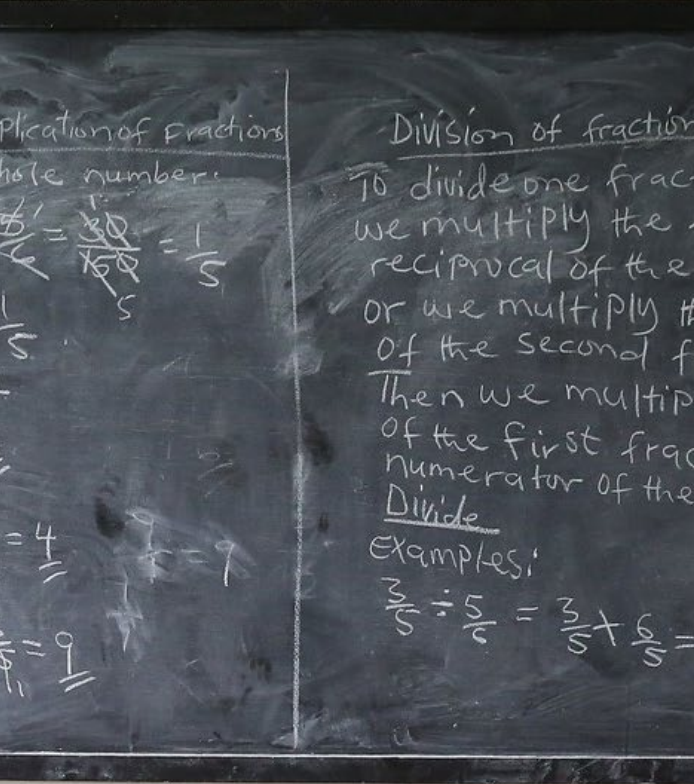 plication of Fractions
hole number:
6/6 = 30/150 = 1/5
5
1/5
= 4
= 9
Division of fraction
To divide one frac
we multiply the
reciprocal of the
or we multiply th
of the second f
Then we multip
of the first frac
numerator of the
Divide
Examples:
3/5 ÷ 5/6 = 3/5 × 6/5 =